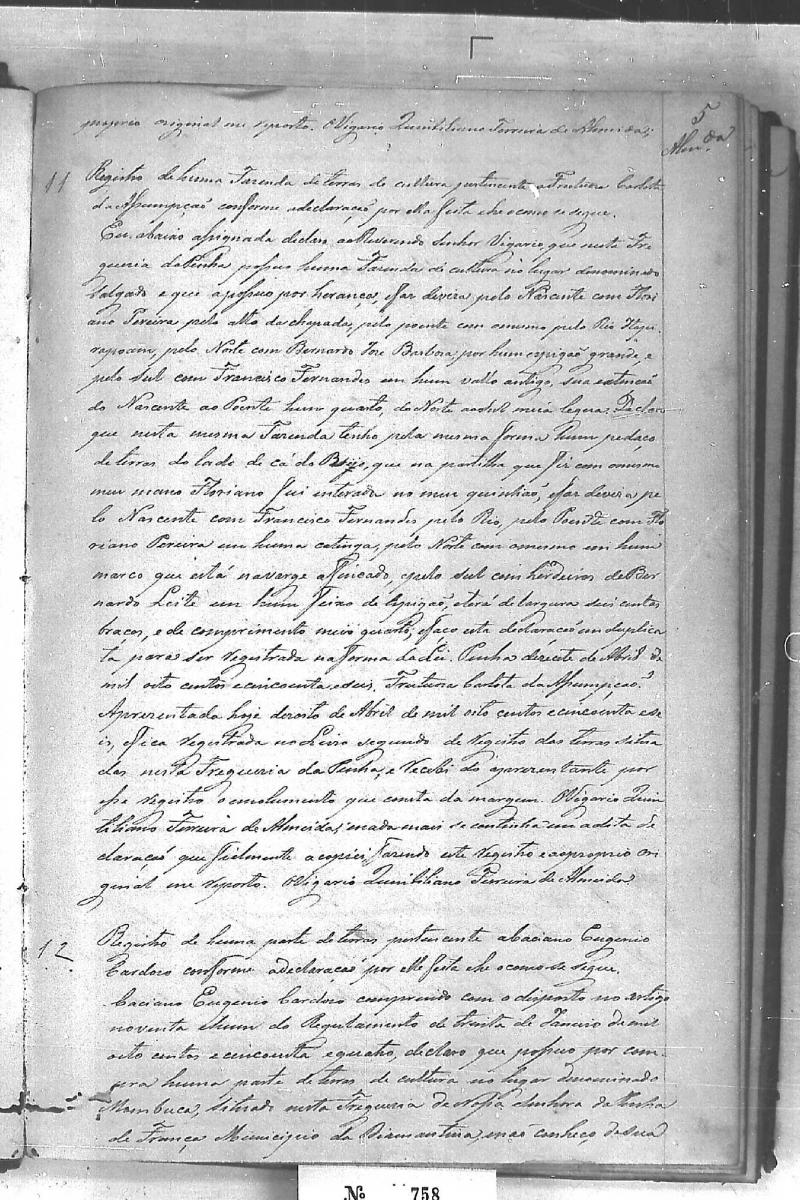 5
Alm.da
proprio original me reporto. O Vigario Quintiliano Ferreira de Almeida;
11 Registro de huma Fazenda de terras de cultura pertencente a Fructuoza Carlota
da Assumpçaõ conforme a declaraçaõ por ella feita e he o como se segue.
Eu abaixo assignada declaro ao Reverendo Senhor Vigario, que nesta Fre
guezia da Penha possuo huma Fazenda de cultura no lugar denominado
Salgado e que a possuo por herança, e faz deviza pelo Nascente com Flori
ano Pereira pelo alto da chapada, pelo poente com o mesmo pelo Rio
pelo Norte com Bernardo José Barboza, por hum espigaõ grande, e
pelo Sul com Francisco Fernandes em hum vallo antigo, sua extençaõ
do Nascente ao Poente hum quarto, do Norte ao Sul meia legua. Declaro
que nesta mesma Fazenda tenho pela mesma forma hum pedaço
de terras do lado de cá do que na partilha que fiz com o mesmo
meu mano Floriano fui enterada no meu quinhaõ, e faz deviza pe
lo Nascente com Francisco Fernandes pelo Rio, pelo Poente com Flo
riano Pereira em huma catinga, pelo Norte com o mesmo em hum
marco que está na varge affincado, e pelo sul com herdeiros de Ber
nardo Leite em hum de espigaõ, e terá de largura seis centos
braços, e de comprimento meio quarto, e faço esta declaraçaõ em duplica
ta para ser registrada na forma da Lei. Penha dezesete de Abril de
mil oito centos e cincoenta e seis. Fructuoza Carlota da Assumpçaõ.
Aprezentada hoje dezoito de Abril de mil oito centos e cincoenta e se
is, e fica registrada no Livro segundo de registro das terras situa
das nesta Freguezia da Penha, e recebi do aprezentante por
esse registro o emolumento que consta da margem. O Vigario Quin
tiliano Ferreira de Almeida; e nada mais se continha em a dita de
claraçaõ que fielmente a copiei fazendo este registro e ao proprio ori
ginal me reporto. O Vigario Quintiliano Ferreira de Almeida
12 Registro de huma parte de terras pertencente a Caciano Eugenio
Cardozo conforme a declaraçaõ por elle feita e he o como se segue.
Caciano Eugenio Cardozo comprindo com o disposto no artigo
noventa e hum do Regulamento de trinta de Janeiro de mil
oito centos e cincoenta e quatro, declaro que possuo por com
pra huma parte de terras de cultura no lugar denominado
Mombuca, situado nesta Freguezia de Nossa Senhora da Penha
de França Municipio da Diamantina, e naõ conheço da sua
Nº 758